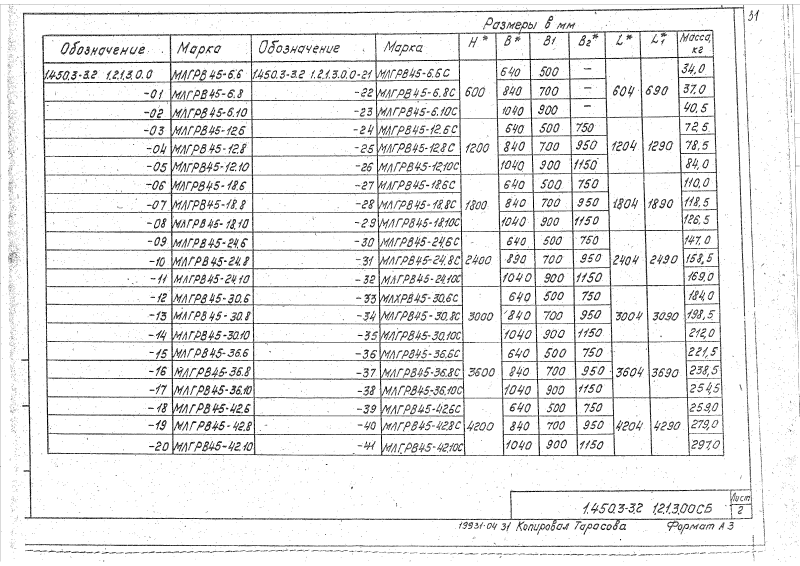 31
Размеры в мм
Обозначение Марка Обозначение Марка H* B* B1 B2* L* L1* Масса, кг
1.450.3-3.2 1.2.1.3.0.0 МЛГРВ45-6.6 1.450.3-3.2 1.2.1.3.0.0-21 МЛГРВ45-6.6С 600 640 500 — 604 690 34,0
-01 МЛГРВ45-6.8 -22 МЛГРВ45-6.8С 840 700 — 37,0
-02 МЛГРВ45-6.10 -23 МЛГРВ45-6.10С 1040 900 — 40,5
-03 МЛГРВ45-12.6 -24 МЛГРВ45-12.6С 1200 640 500 750 1204 1290 72,5
-04 МЛГРВ45-12.8 -25 МЛГРВ45-12.8С 840 700 950 78,5
-05 МЛГРВ45-12.10 -26 МЛГРВ45-12.10С 1040 900 1150 84,0
-06 МЛГРВ45-18.6 -27 МЛГРВ45-18.6С 1800 640 500 750 1804 1890 110,0
-07 МЛГРВ45-18.8 -28 МЛГРВ45-18.8С 840 700 950 118,5
-08 МЛГРВ45-18.10 -29 МЛГРВ45-18.10С 1040 900 1150 126,5
-09 МЛГРВ45-24.6 -30 МЛГРВ45-24.6С 2400 640 500 750 2404 2490 147,0
-10 МЛГРВ45-24.8 -31 МЛГРВ45-24.8С 890 700 950 158,5
-11 МЛГРВ45-24.10 -32 МЛГРВ45-24.10С 1040 900 1150 169,0
-12 МЛГРВ45-30.6 -33 МЛХРВ45-30.6С 3000 640 500 750 3004 3090 184,0
-13 МЛГРВ45-30.8 -34 МЛГРВ45-30.8С 840 700 950 198,5
-14 МЛГРВ45-30.10 -35 МЛГРВ45-30.10С 1040 900 1150 212,0
-15 МЛГРВ45-36.6 -36 МЛГРВ45-36.6С 3600 640 500 750 3604 3690 221,5
-16 МЛГРВ45-36.8 -37 МЛГРВ45-36.8С 840 700 950 238,5
-17 МЛГРВ45-36.10 -38 МЛГРВ45-36.10С 1040 900 1150 254,5
-18 МЛГРВ45-42.6 -39 МЛГРВ45-42.6С 4200 640 500 750 4204 4290 259,0
-19 МЛГРВ45-42.8 -40 МЛГРВ45-42.8С 840 700 950 279,0
-20 МЛГРВ45-42.10 -41 МЛГРВ45-42.10С 1040 900 1150 297,0
1.450.3-3.2 1.2.1.3.0.0 СБ Лист 2
19931-04 31 Копировал Тарасова Формат А3